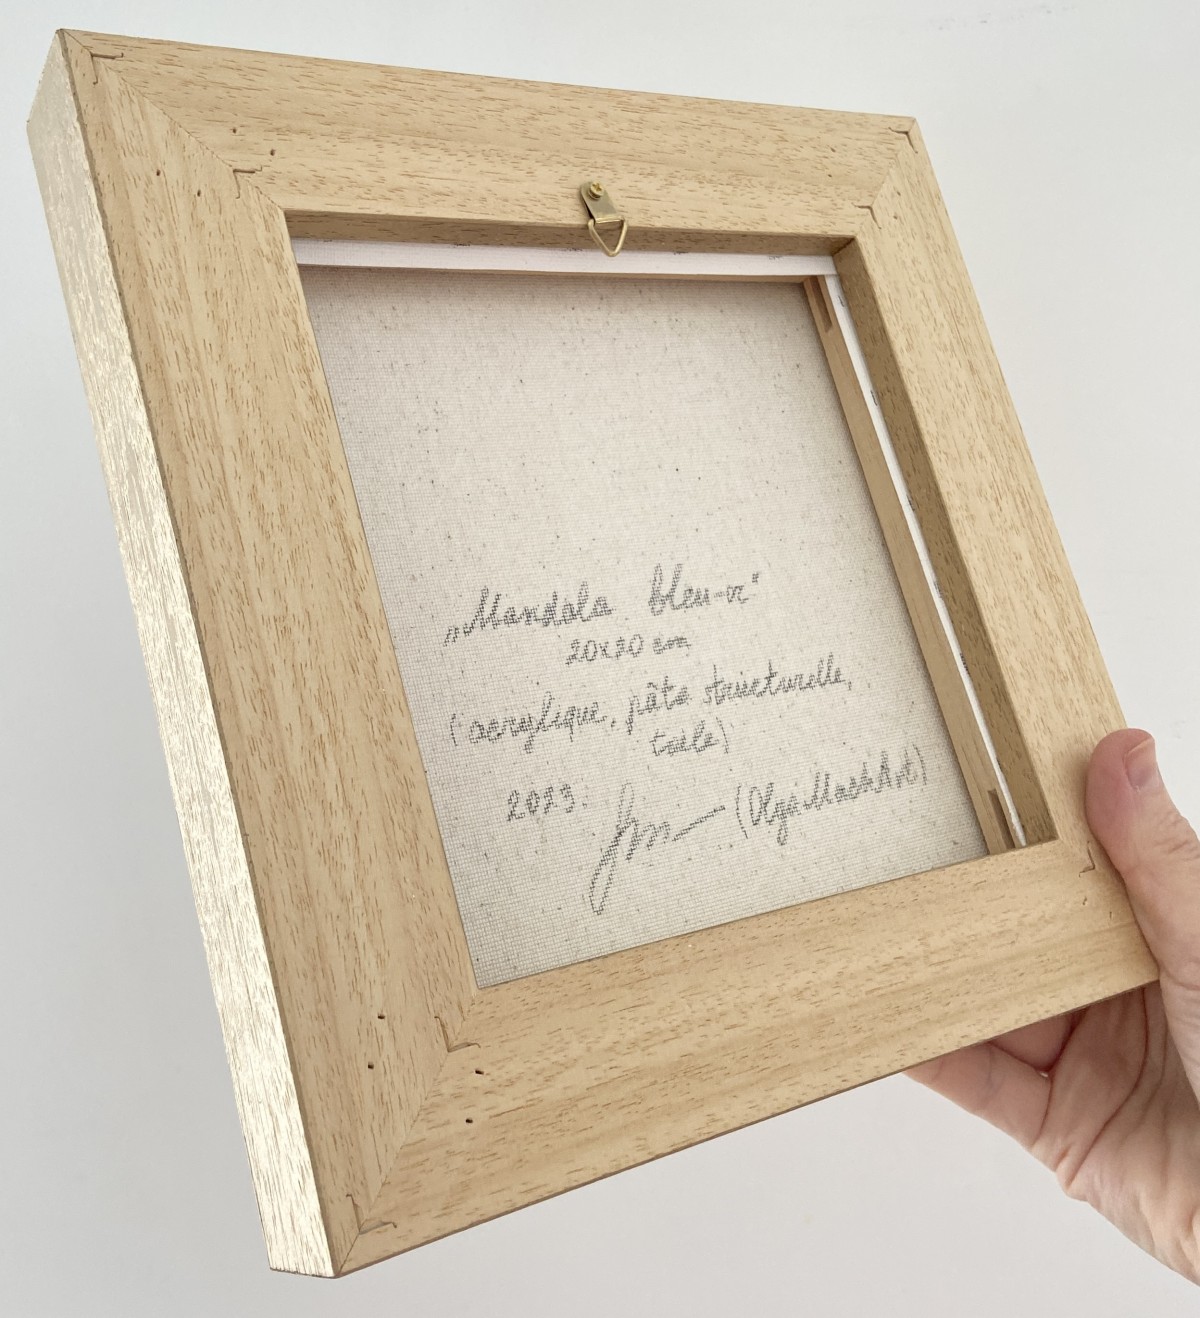 „Mandala bleu-or“
20x20 cm
(acrylique, pâte structurelle,
toile)
2023. (OlgaMashArt)